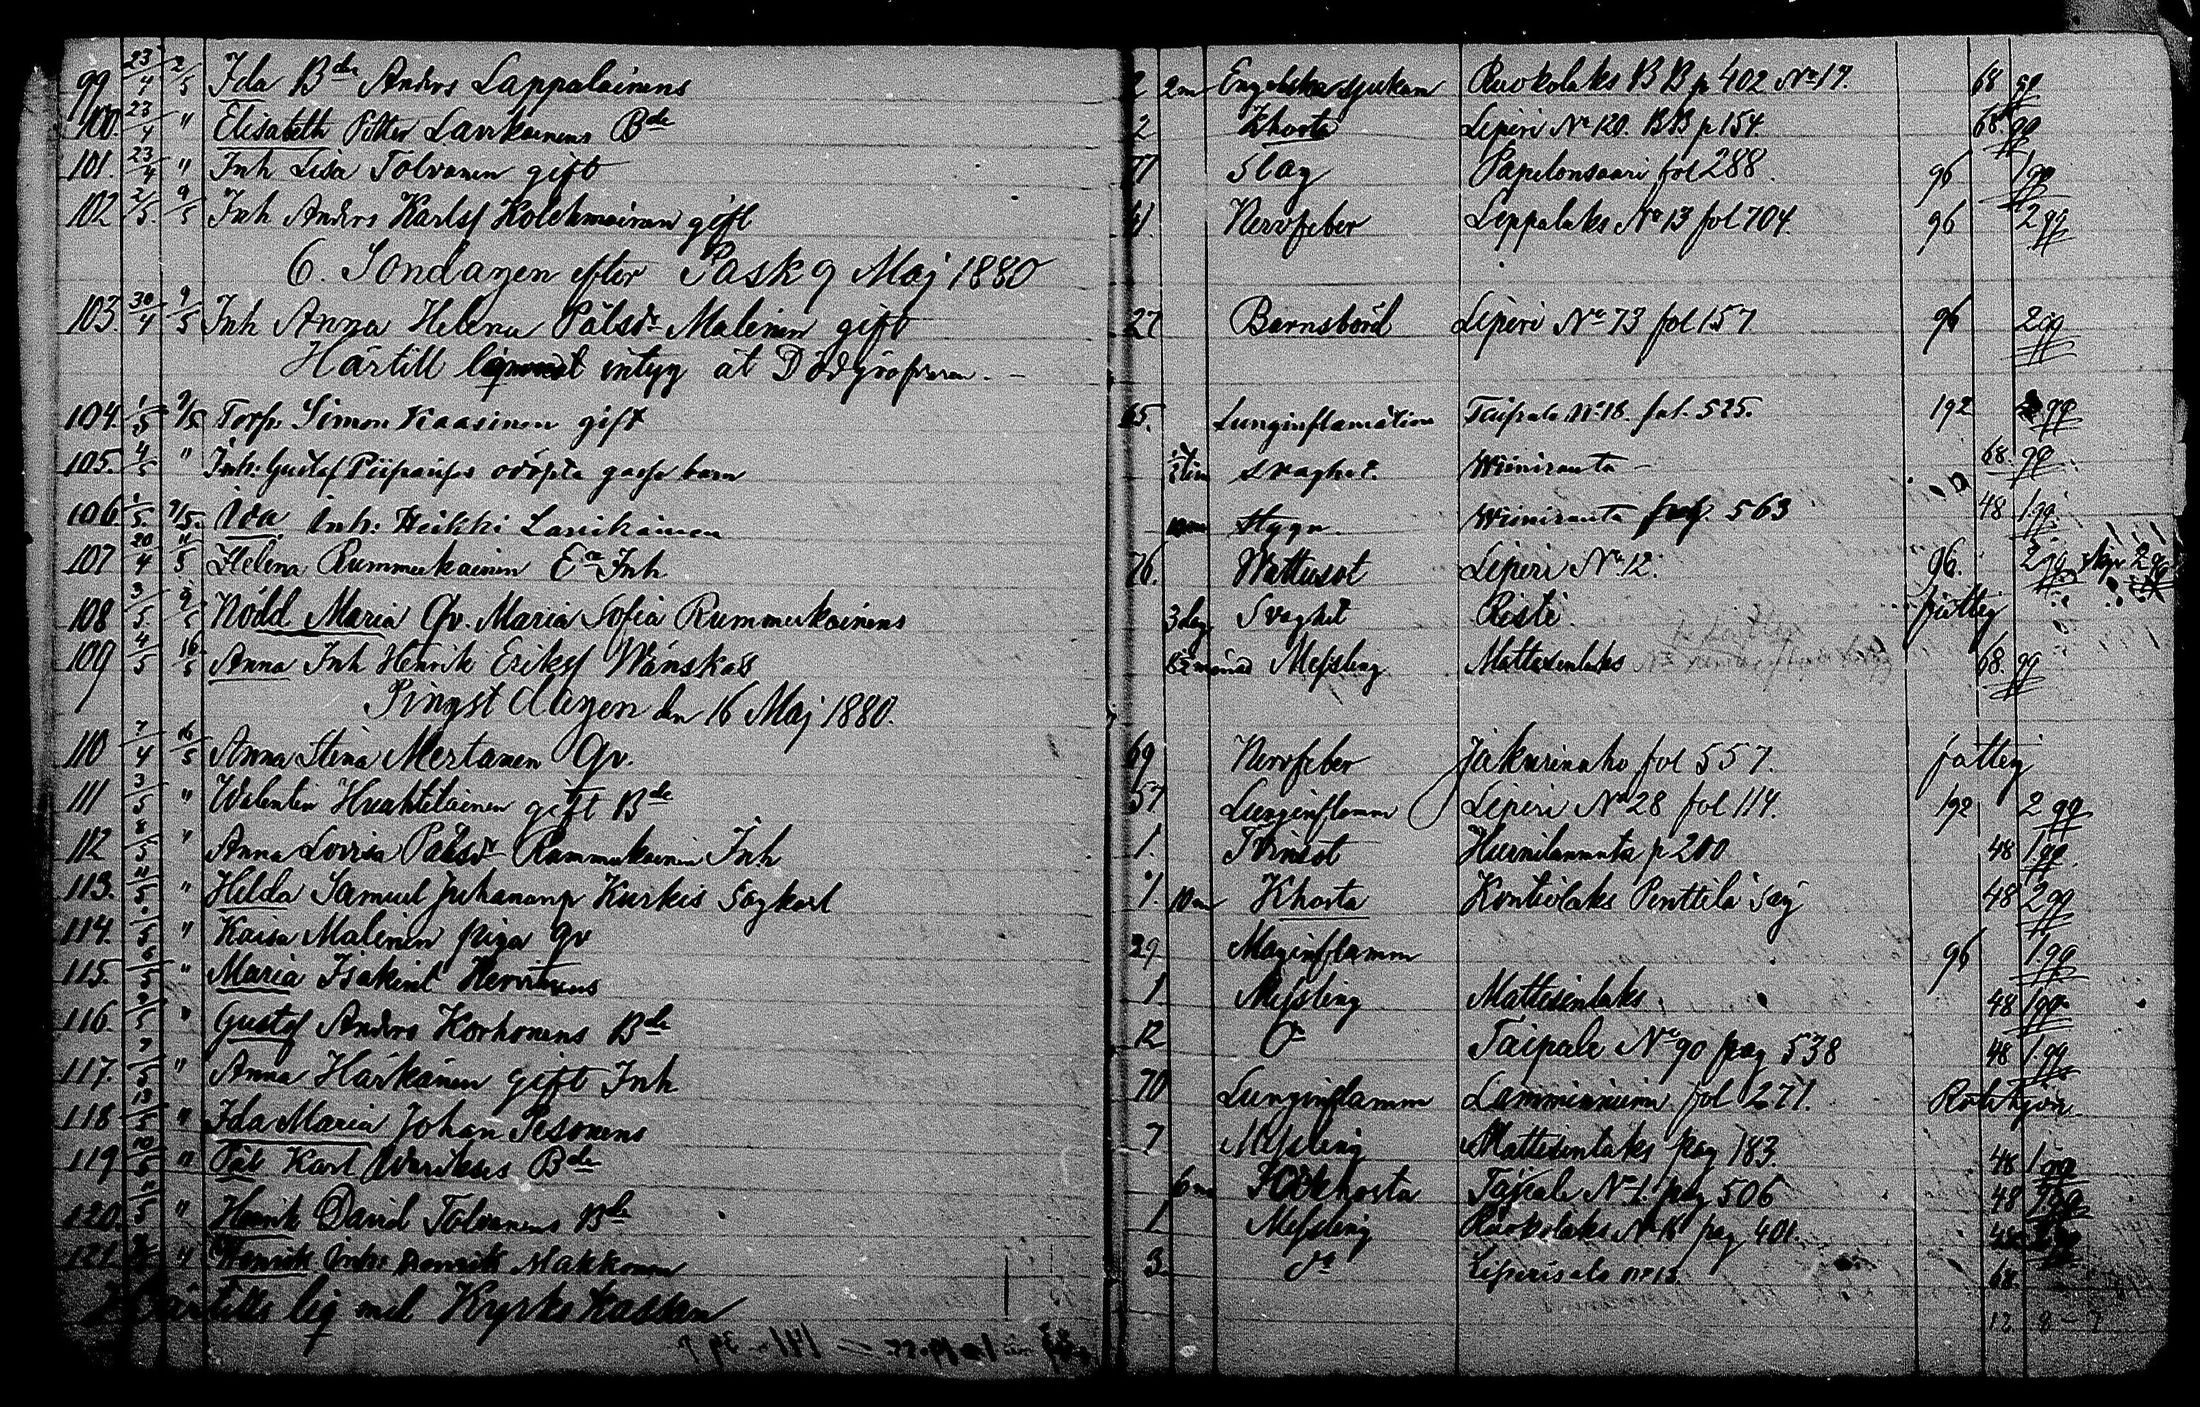 99 23/4 2/5 Ida Bde Anders Lappalainens 2 2m Engelska sjukan Ruokolaks BB p 402 No 17. 68 gg
100. 23/4 " Elisabeth Petter Laukkanens Bde 2 Khosta Liperi No 120. BB p 154. 68 gg
101. 23/4 " Inh Lisa Tolvanen gift 77 Slag Papelonsaari fol 288. 96 1 gg
102 2/5 9/5 Inh Anders Karlss Kolehmainen gift Nervfeber Leppälaks No 13 fol 704. 96 2 gg
6. Söndagen efter Påsk 9 Maj 1880
103. 30/4 9/5 Inh Anna Helena Pålsdr Malinen gift 27 Barnsbörd Liperi No 73 fol 157 96 2 gg
Härtill intyg åt
104. 1/5 9/5 Torp. Simon Kaasinen gift 65. Lunginflamation Taipale No 18. fol. 525. 192 2 gg
105. 4/5 " Inh: Gustaf odöpta gosse barn Svaghet. Wiiniranta 68. gg
106. 1/5 9/5. Ida Inh: Heikki 10m Stygn Wiiniranta pag. 563 48 1 gg
107 20/4 11/5 Helena Rummukainen Ea Inh 76. Wattusot Liperi No 12. 96. 2 gg
108 3/5 9/5 Nödd Maria Qv. Maria Sofia Rummukainens 3 dag Svaghet Risti fattig
109 4/5 16/5 Anna Inh Henrik Erikss Wänskäs 8½ månad Messling Mattisenlaks 68. gg
Pingst dagen den 16 Maj 1880.
110 7/4 16/5 Anna Stina Mertanen Qv. 69 Nervfeber Jakurinaho fol 557. fattig
111 3/5 " Walentin Huahtilainen gift Bde 57 Lunginflamm Liperi No 28 fol 114. 192 2 gg
112 8/5 " Anna Lovisa Pålsdr Rummukainen Inh 1. Tvinsot p 200 48 1 gg.
113. 11/5 " Helda Samuel Juhananp Kurkis Sågkarl 1. 10m Khosta Kontiolaks Penttilä såg 48 2 gg
114. " Kaisa Malinen piga qv 29 Maginflamm 96 1 gg
115. 6/5 " Maria Isakint 1 Messling Mattisenlaks. 48 1 gg
116. 9/5 " Gustaf Anders Korhonens Bde 12 do Taipale No 90 pag 538 48 1 gg
117. 7/5 " Anna Härkänen gift Inh 70 Lunginflamm Lamminniemi fol 271.
118 13/5 " Ida Maria Johan Pesonens 7 Messling Mattisenlaks pag 183. 48 1 gg
119 10/5 " Pål Karl Bde 6m Kikhosta Taipale No 1. pag 506 48 1 gg
120. 11/5 " Henrik David Tolvanens Bde 1 Messling Ruokolaks No 16 pag 401. 48
121. " Henrik Inh: Henrik Makkonen 3 do Liperisalo no 13 68.
Härtills liq med Kyrko kassan 12 8 – 7